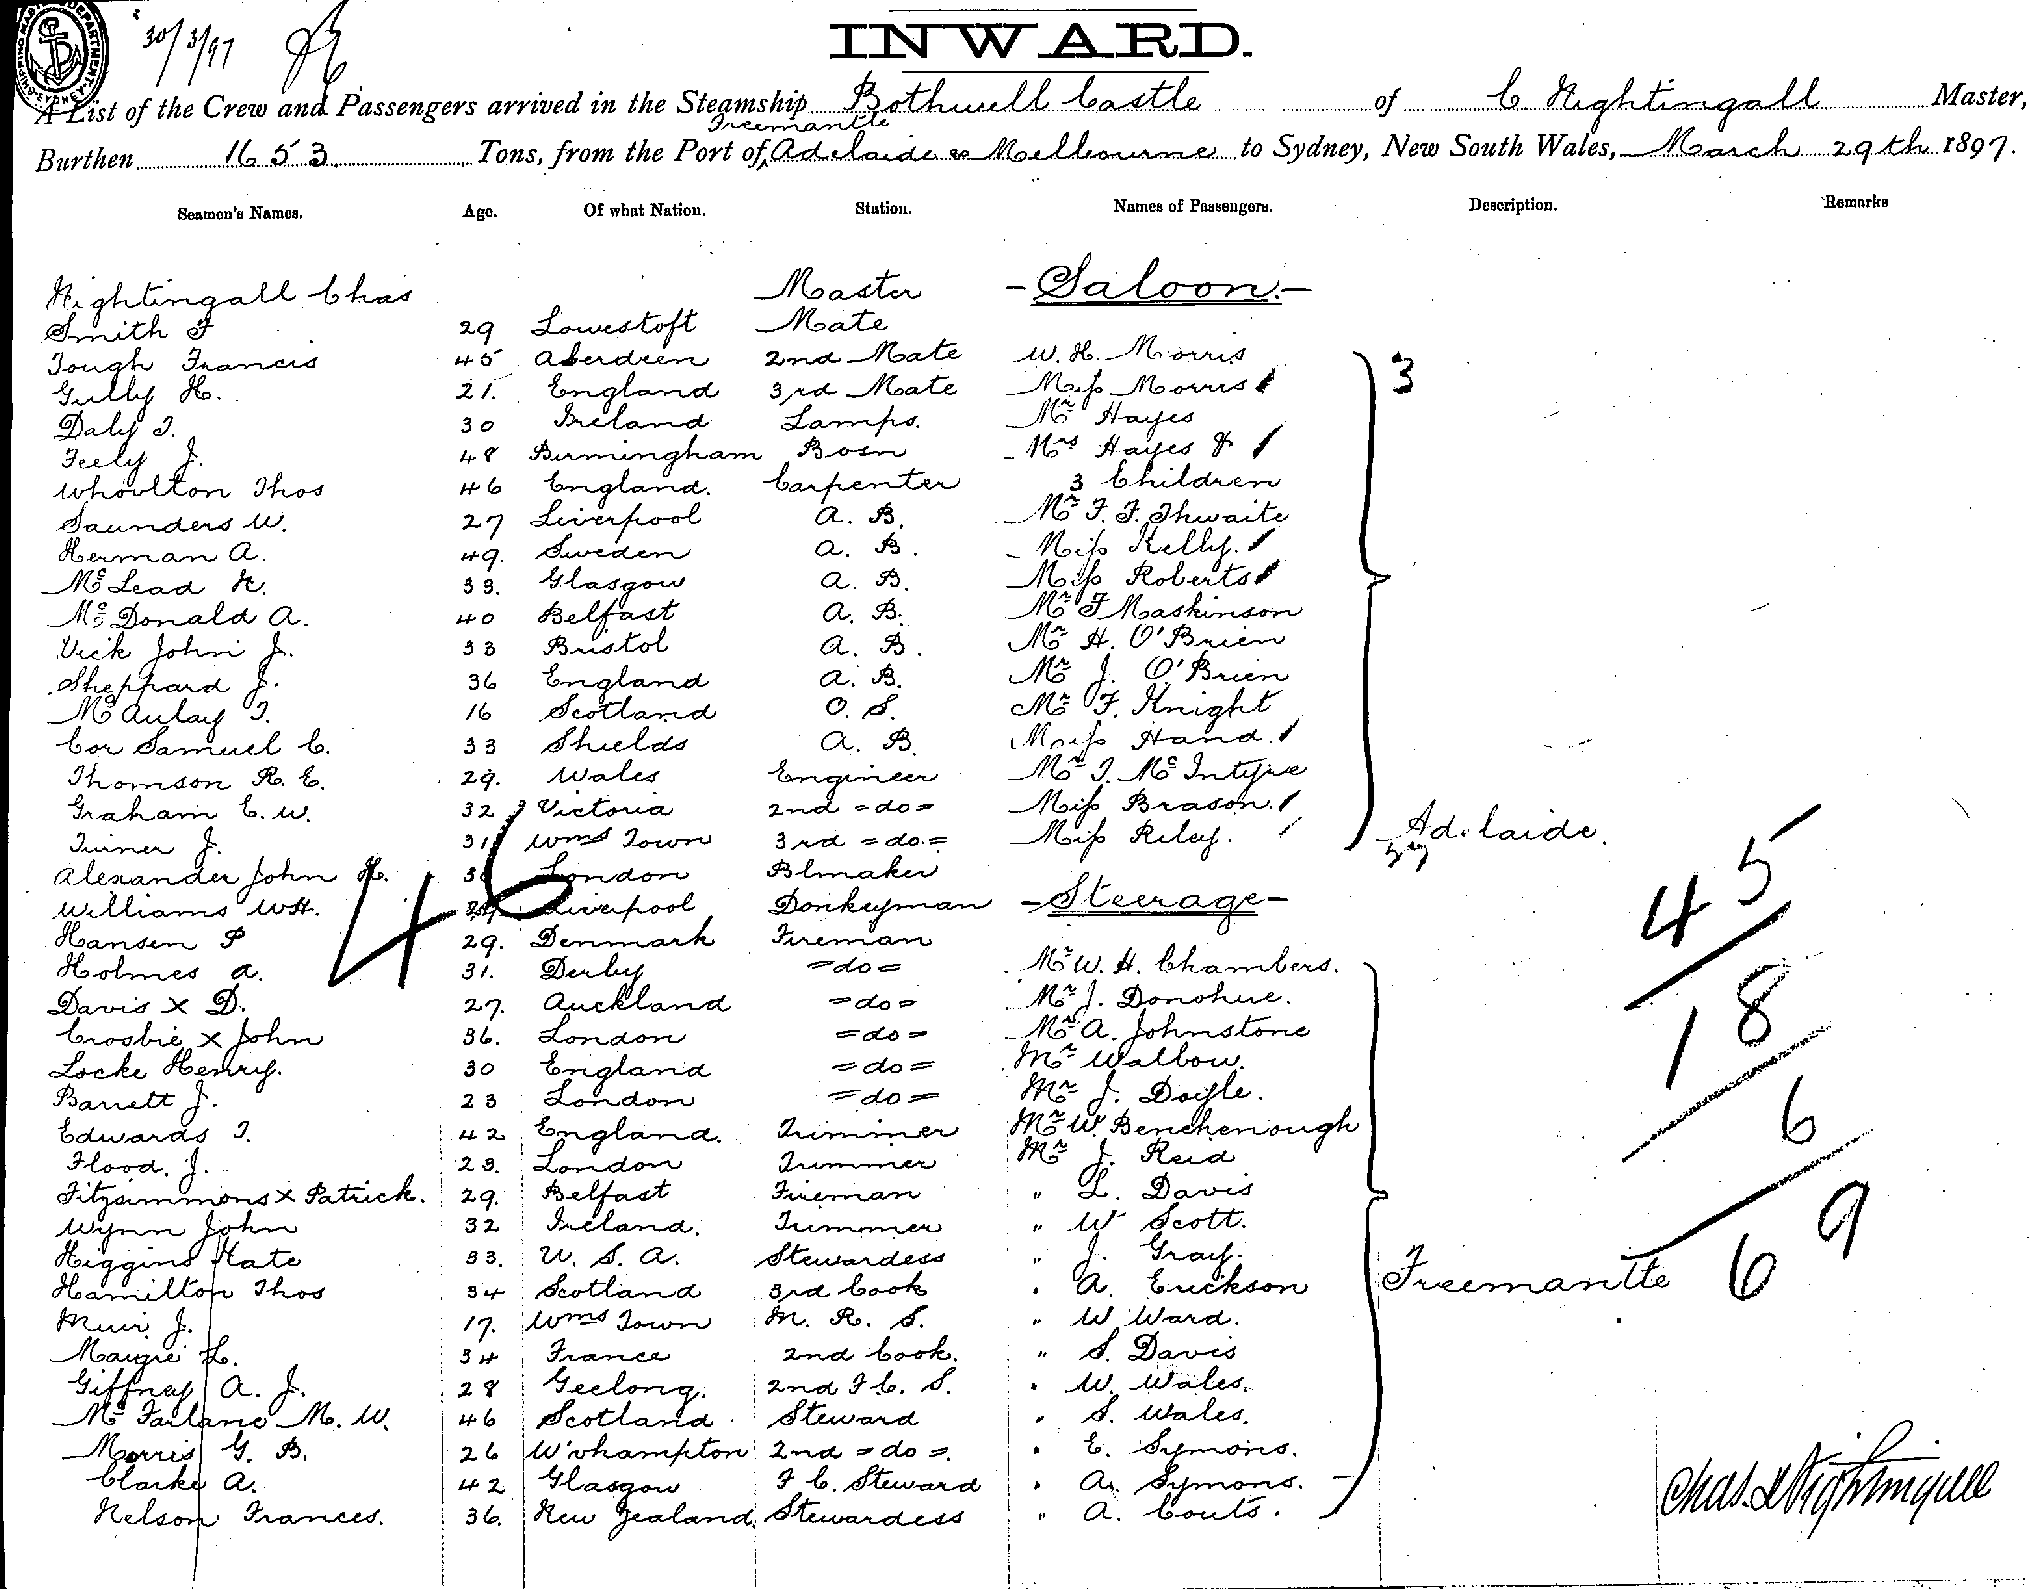 SHIPPING MASTER'S DEPARTMENT SYDNEY
30/3/97
INWARD.
A List of the Crew and Passengers arrived in the Steamship Bothwell Castle of C Nightingall Master,
Freemantle
Burthen 1653 Tons, from the Port of Adelaide & Melbourne to Sydney, New South Wales, March 29th 1897.
Seamen's Names. Age. Of what Nation. Station. Names of Passengers. Description. Remarks
Nightingall Chas Master - Saloon. -
Smith F 29 Lowestoft Mate
Tough Francis 45 Aberdeen 2nd Mate W. H. Morris 3
Gully H. 21. England 3rd Mate Miss Morris
Daly T. 30 Ireland Lamps. Mr Hayes
Feely J. 48 Birmingham Bosn Mrs Hayes &
Whoolton Thos 46 England. Carpenter 3 Children
Saunders W. 27 Liverpool A. B. Mr F. F. Thwaite
Herman A. 49. Sweden A. B. Miss Kelly.
McLead K. 33. Glasgow A. B. Miss Roberts
McDonald A. 40 Belfast A. B. Mr F Maskinson
Vick John J. 33 Bristol A. B. Mr H. O'Brien
Sheppard J. 36 England A. B. Mr J. O'Brien
McAulay T. 16 Scotland O. S. Mr F. Knight
Cor Samuel C. 33 Shields A. B. Miss Hand.
Thomson R. E. 29. Wales Engineer Mr T. McIntyre
Graham E. W. 32 Victoria 2nd = do = Miss Brason.
Turner J. 31 Wms Town 3rd = do = Miss Riley. Adelaide.
Alexander John H. London Blmaker
46
Williams WH. Liverpool Donkeyman - Steerage -
45
Hansen P 29. Denmark Fireman
Holmes A. 31. Derby = do = Mr W. H. Chambers.
Davis X D. 27. Auckland = do = Mr J. Donohue.
18
Crosbie X John 36. London = do = Mr A. Johnstone
Locke Henry. 30 England = do = Mr Walbow.
Barrett J. 23 London = do = Mr J. Doyle.
6
Edwards T. 42 England. Trimmer Mr W. Benchenough
Flood. J. 23. London Trimmer Mr J. Reid
Fitzsimmons X Patrick. 29. Belfast Fireman " L. Davis
Wynn John 32 Ireland. Trimmer " W Scott.
Higgins Kate 33. U. S. A. Stewardess " J. Gray.
69
Hamilton Thos 34 Scotland 3rd Cook " A. Erickson Freemantle
Muir J. 17. Wms Town M. R. S. " W Ward.
Maigre L. 34 France 2nd Cook. " S. Davis
Giffney A. J. 28 Geelong. 2nd F C. S. " W. Wales.
McFarlane M. W. 46 Scotland Steward " S. Wales.
Morris G. B. 26 W'vhampton 2nd = do =. " E. Symons.
Clarke A. 42 Glasgow F C. Steward " A. Symons. -
Nelson Frances. 36. New Zealand. Stewardess " A. Couts.
Chas. Nightingall